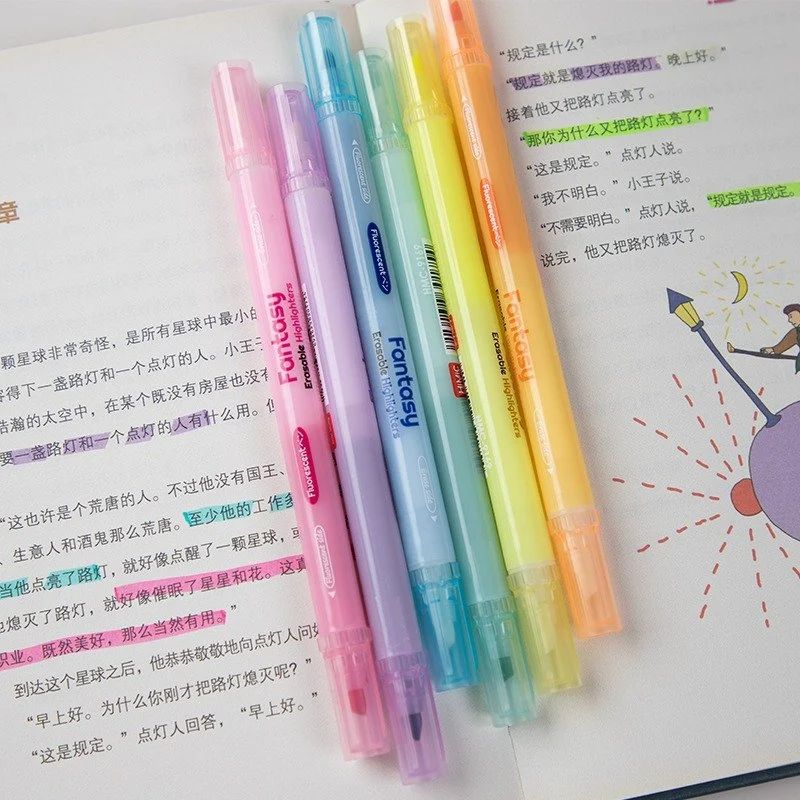 章
颗星球非常奇怪，是所有星球中最小的
容得下一盏路灯和一个点灯的人。小王子
浩瀚的太空中，在某个既没有房屋也没有
要一盏路灯和一个点灯的人有什么用。但
“这也许是个荒唐的人。不过他没有国王、
、生意人和酒鬼那么荒唐。至少他的工作多
当他点亮了路灯，就好像点醒了一颗星球，或
他熄灭了路灯，就好像催眠了星星和花。这真
职业。既然美好，那么当然有用。”
到达这个星球之后，他恭恭敬敬地向点灯人问好
“早上好。为什么你刚才把路灯熄灭呢？”
“这是规定。”点灯人回答，“早上好。”
“规定是什么？”
“规定就是熄灭我的路灯。晚上好。”
接着他又把路灯点亮了。
“那你为什么又把路灯点亮了？”
“这是规定。”点灯人说。
“我不明白。”小王子说。
“不需要明白。”点灯人说，“规定就是规定。
说完，他又把路灯熄灭了。
Fantasy
Erasable Highlighters
Fluorescent ペン
Fluorescent Side
Fluorescent ペン
Fantasy
Erasable Highlighters
Erasable Highlighters
Fantasy